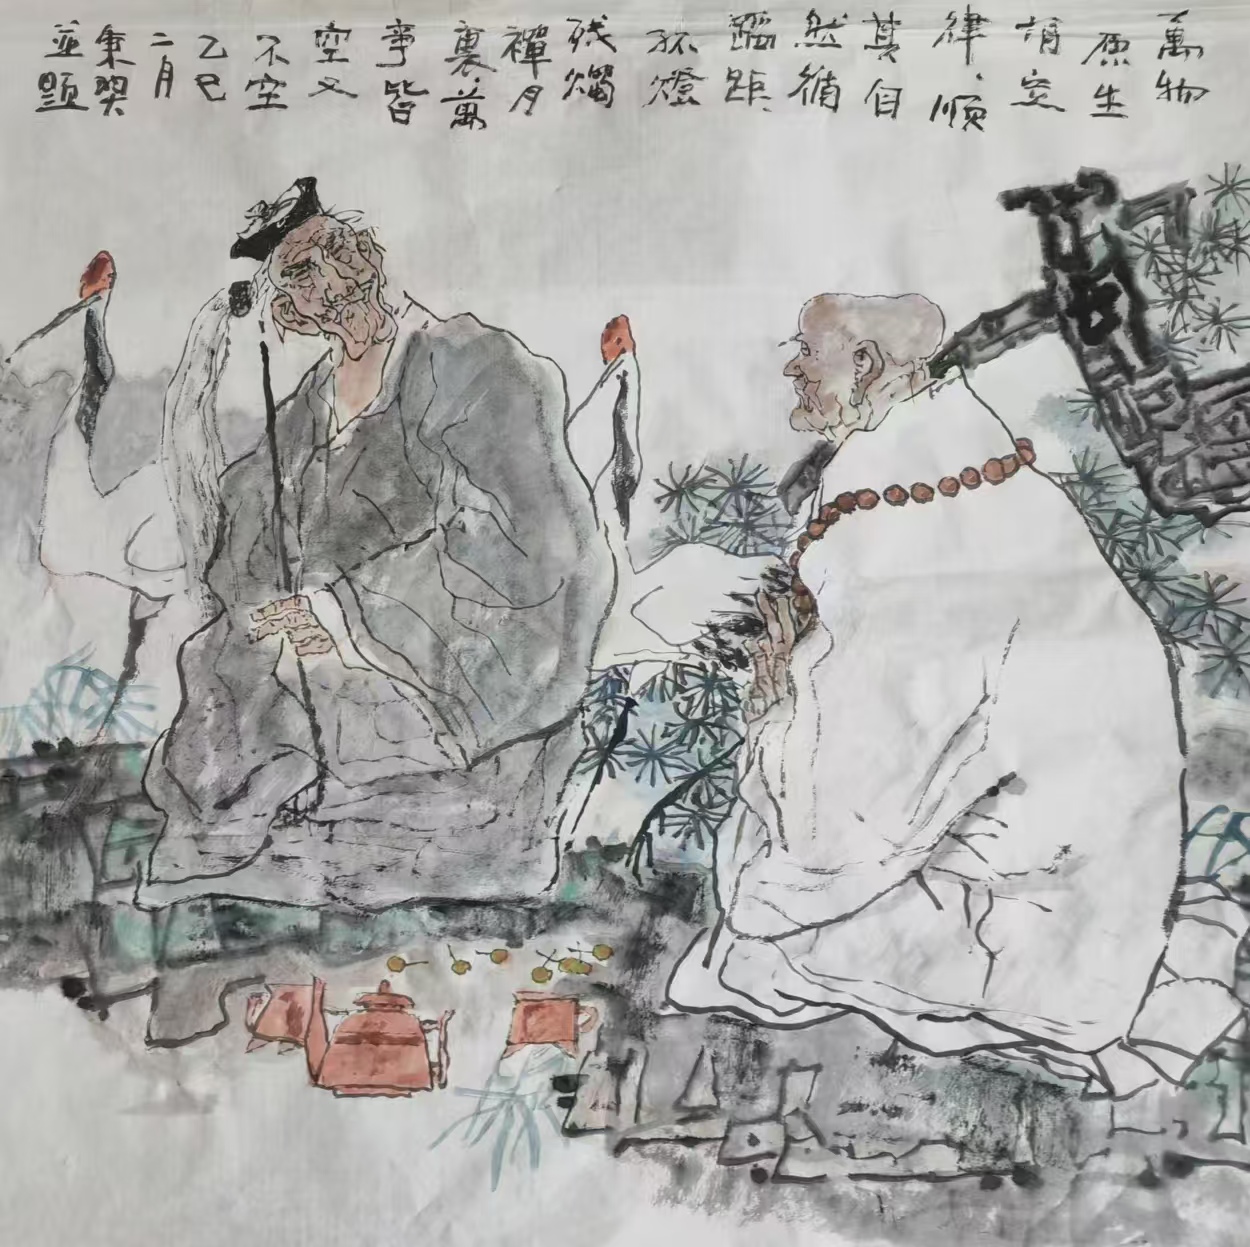 萬物
原生
定
律、順
其自
然循
蹈距、
孤燈
残燭
禪月
裏、萬
事皆
空又
不空
乙巳
二月
秉
並題